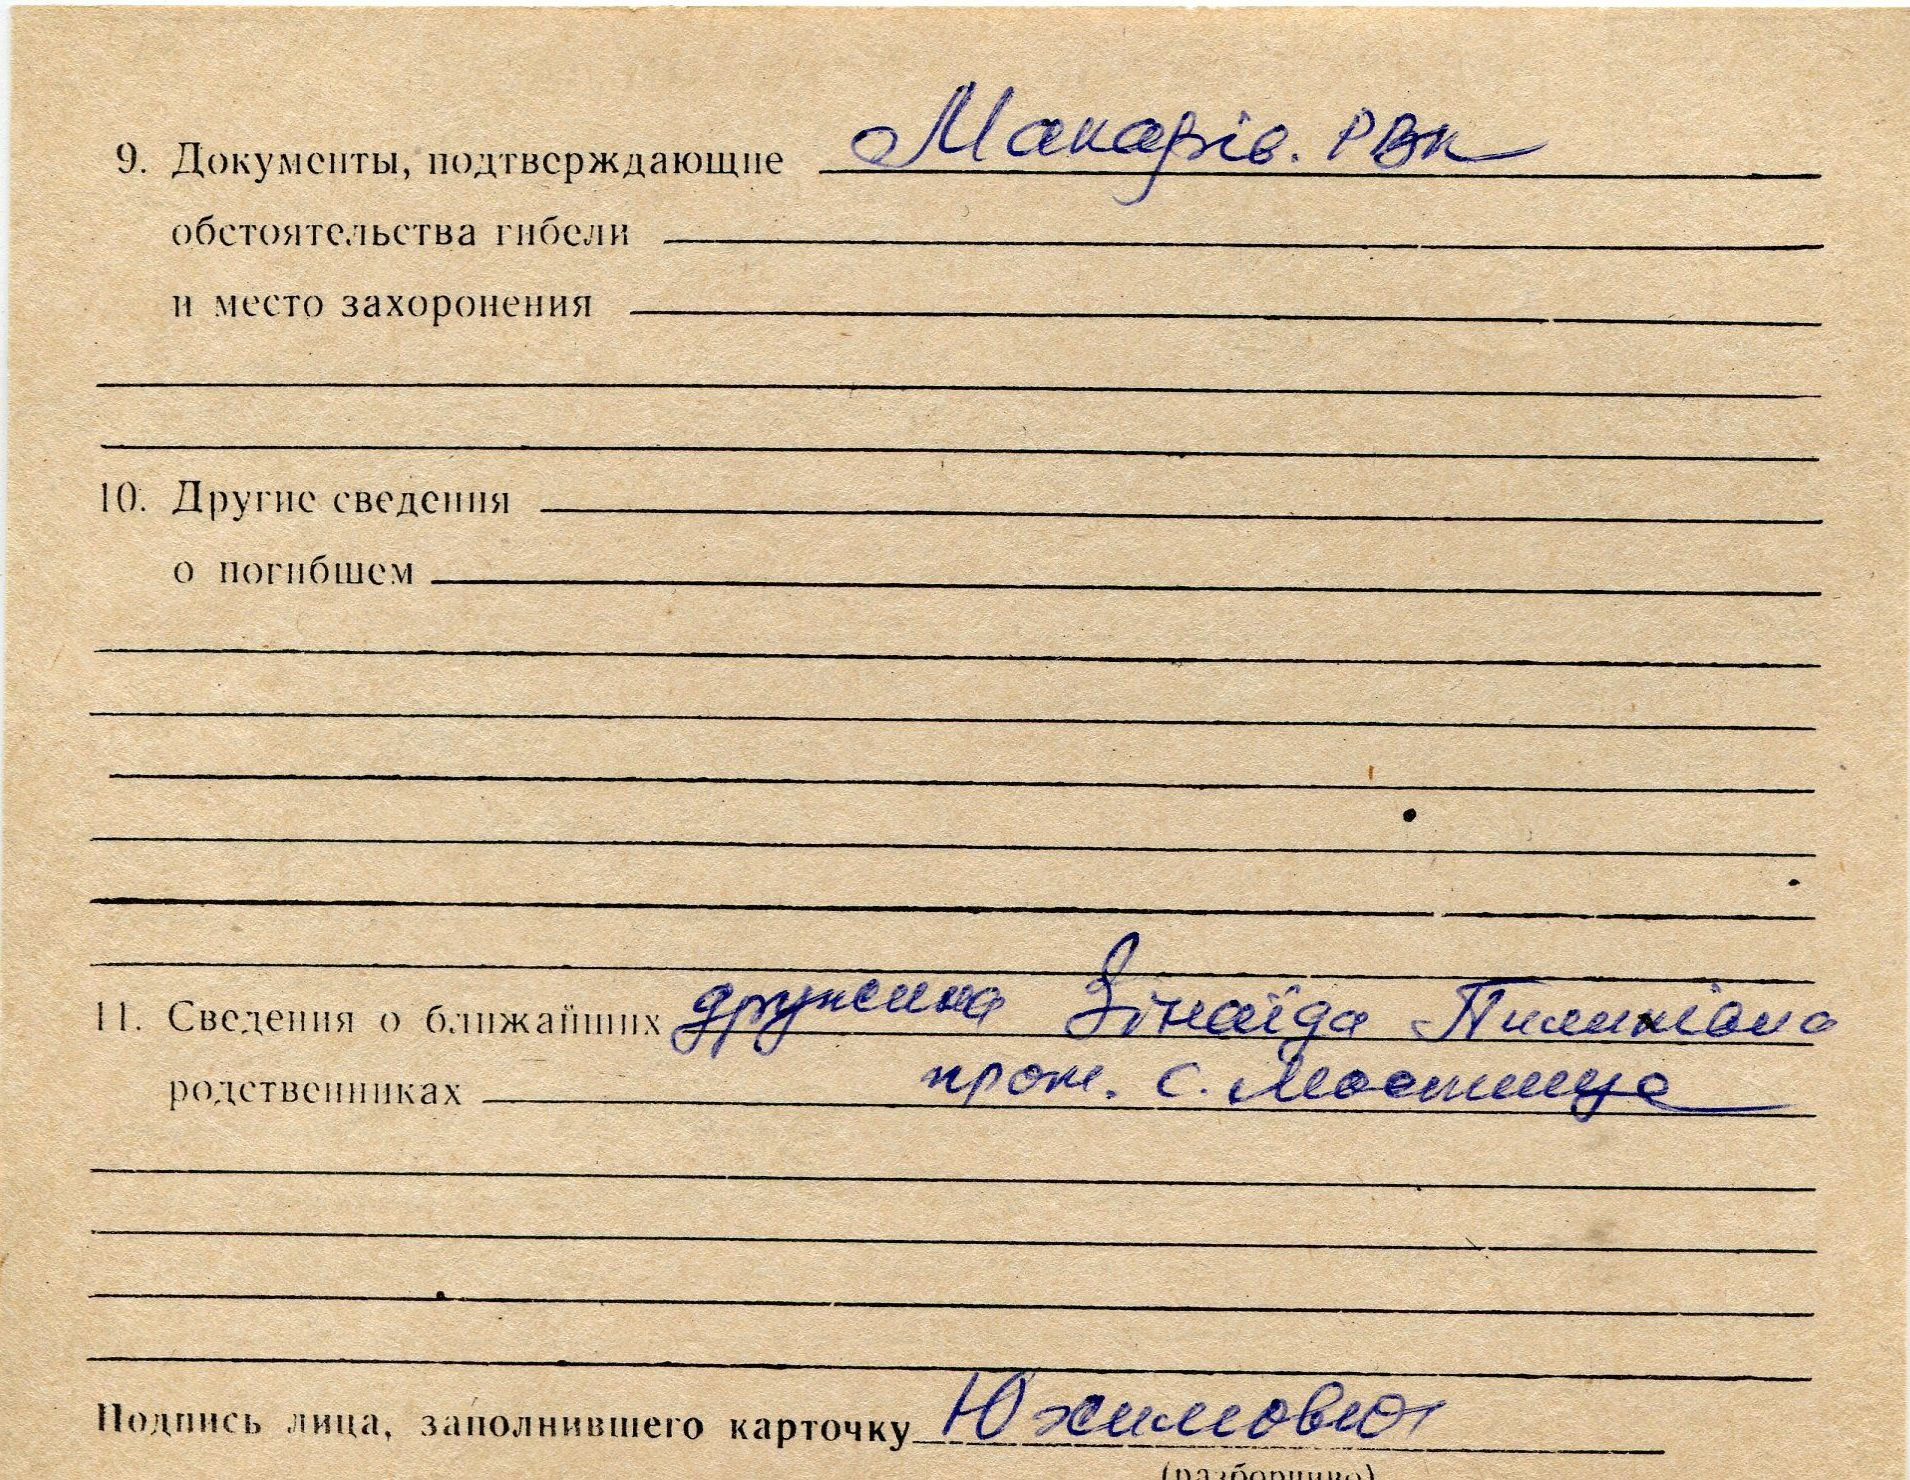 9. Документы, подтверждающие Макарів. РВК
обстоятельства гибели
и место захоронения
10. Другие сведения
о погибшем
11. Сведения о ближайших дружина Зінаїда Пилипівна
родственниках прож. с. Мостище
Подпись лица, заполнившего карточку
(разборчиво)